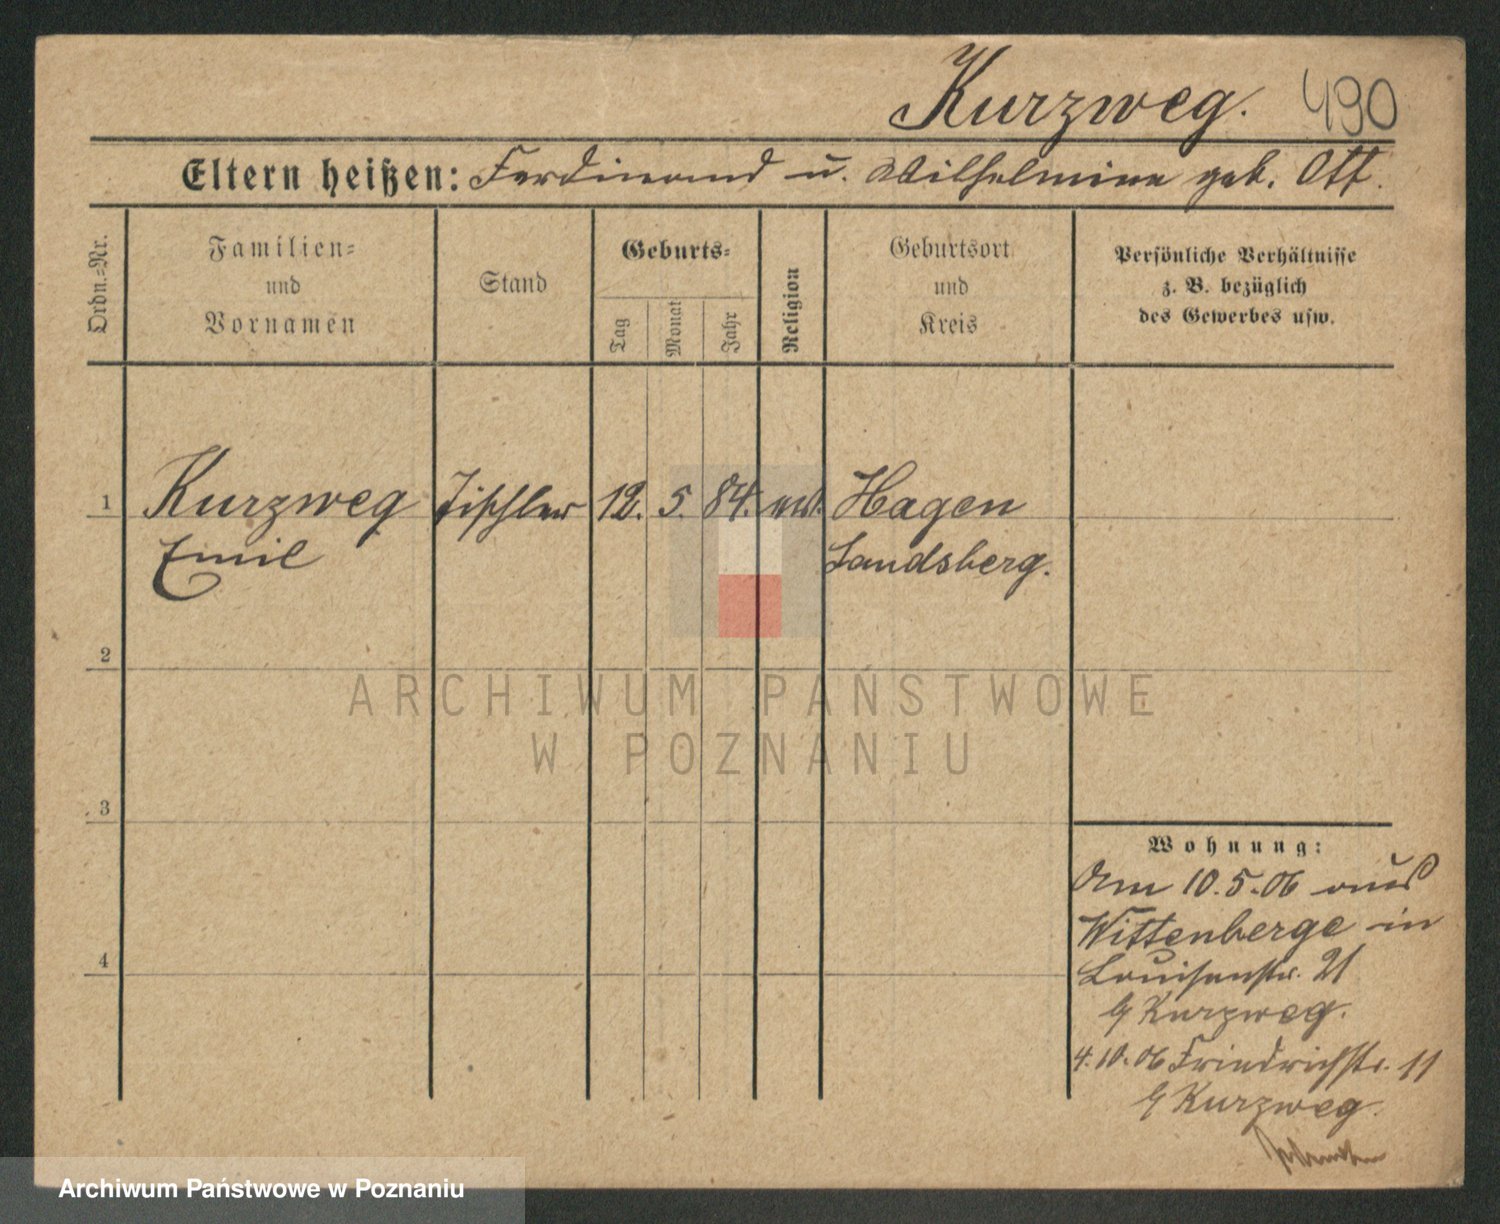 Kurzweg. 490
Eltern heißen: Ferdinand u. Wilhelmine geb. Ott.
Ordn.=Nr.
Familien=
und
Vornamen
Stand
Geburts=
Tag
Monat
Jahr
Religion
Geburtsort
und
Kreis
Persönliche Verhältnisse
z. B. bezüglich
des Gewerbes usw.
1 Kurzweg Tischler 12. 5. 84. Hagen
Emil Landsberg.
2
ARCHIWUM PAŃSTWOWE
W POZNANIU
3
Wohnung:
Am 10.5.06 aus
Wittenberge in
4
Louisenstr. 21
Kurzweg.
4.10.06 Friedrichstr. 11
Kurzweg.
Archiwum Państwowe w Poznaniu